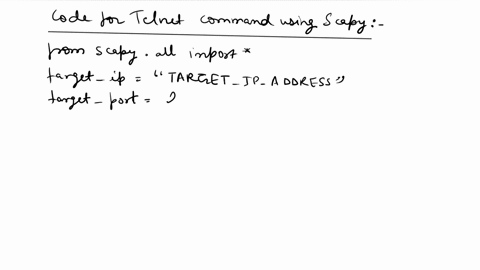 Code for Telnet command using Scapy:-
from scapy.all import *
target_ip = "TARGET_IP_ADDRESS"
target_port = 2